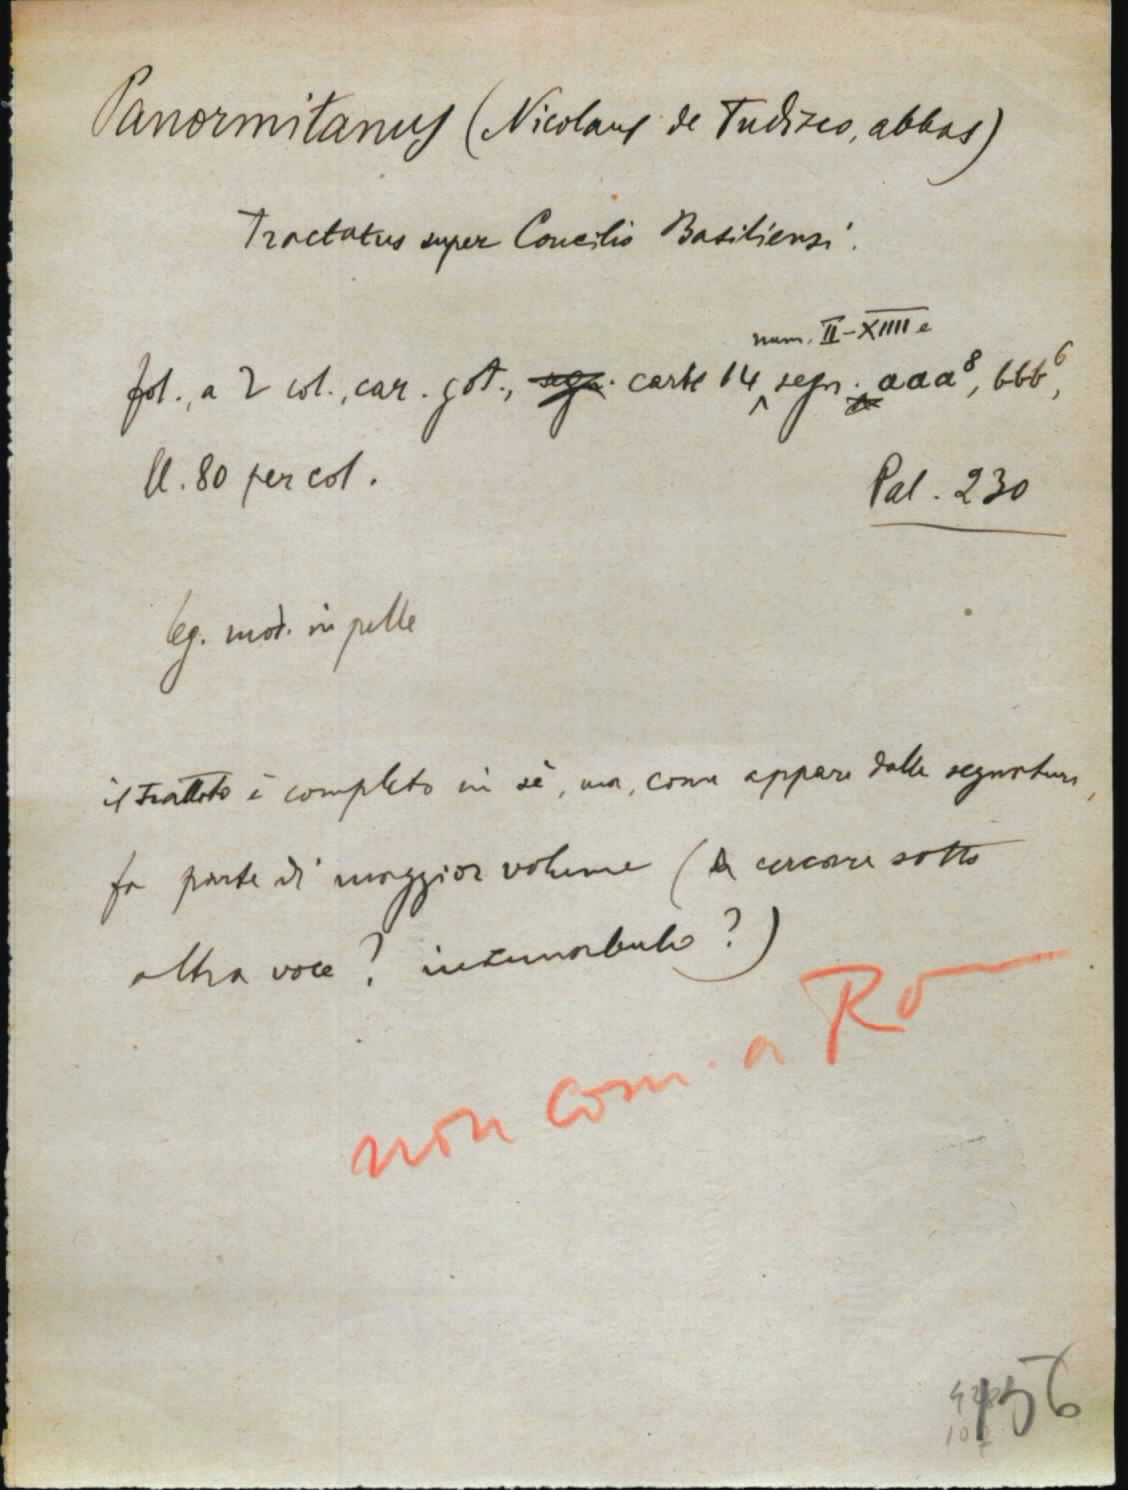 Panormitanus (Nicolaus de Tudisco, abbas)
Tractatus super Concilio Basiliensi.
num. II-XIIII e
fol., a 2 col., car. got., segn. carte 14 segn. aaa8, bbb6,
ll. 80 per col.
Pal. 230
leg. mod. in pelle
il trattato è completo in sè, ma, come appare dalle segnature,
fa parte di maggior volume (da cercare sotto
altra voce? incunabulo?)
non com. a Ro
156